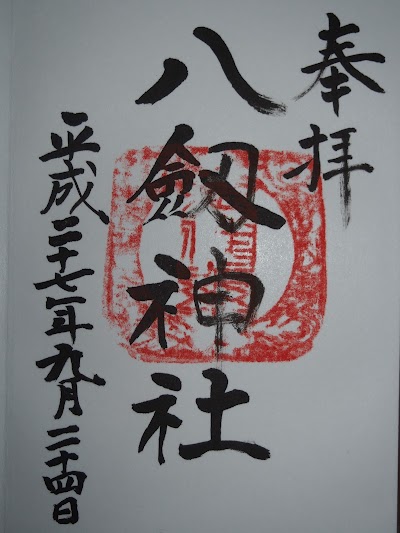 奉拝
八劔神社
平成二十七年九月二十四日